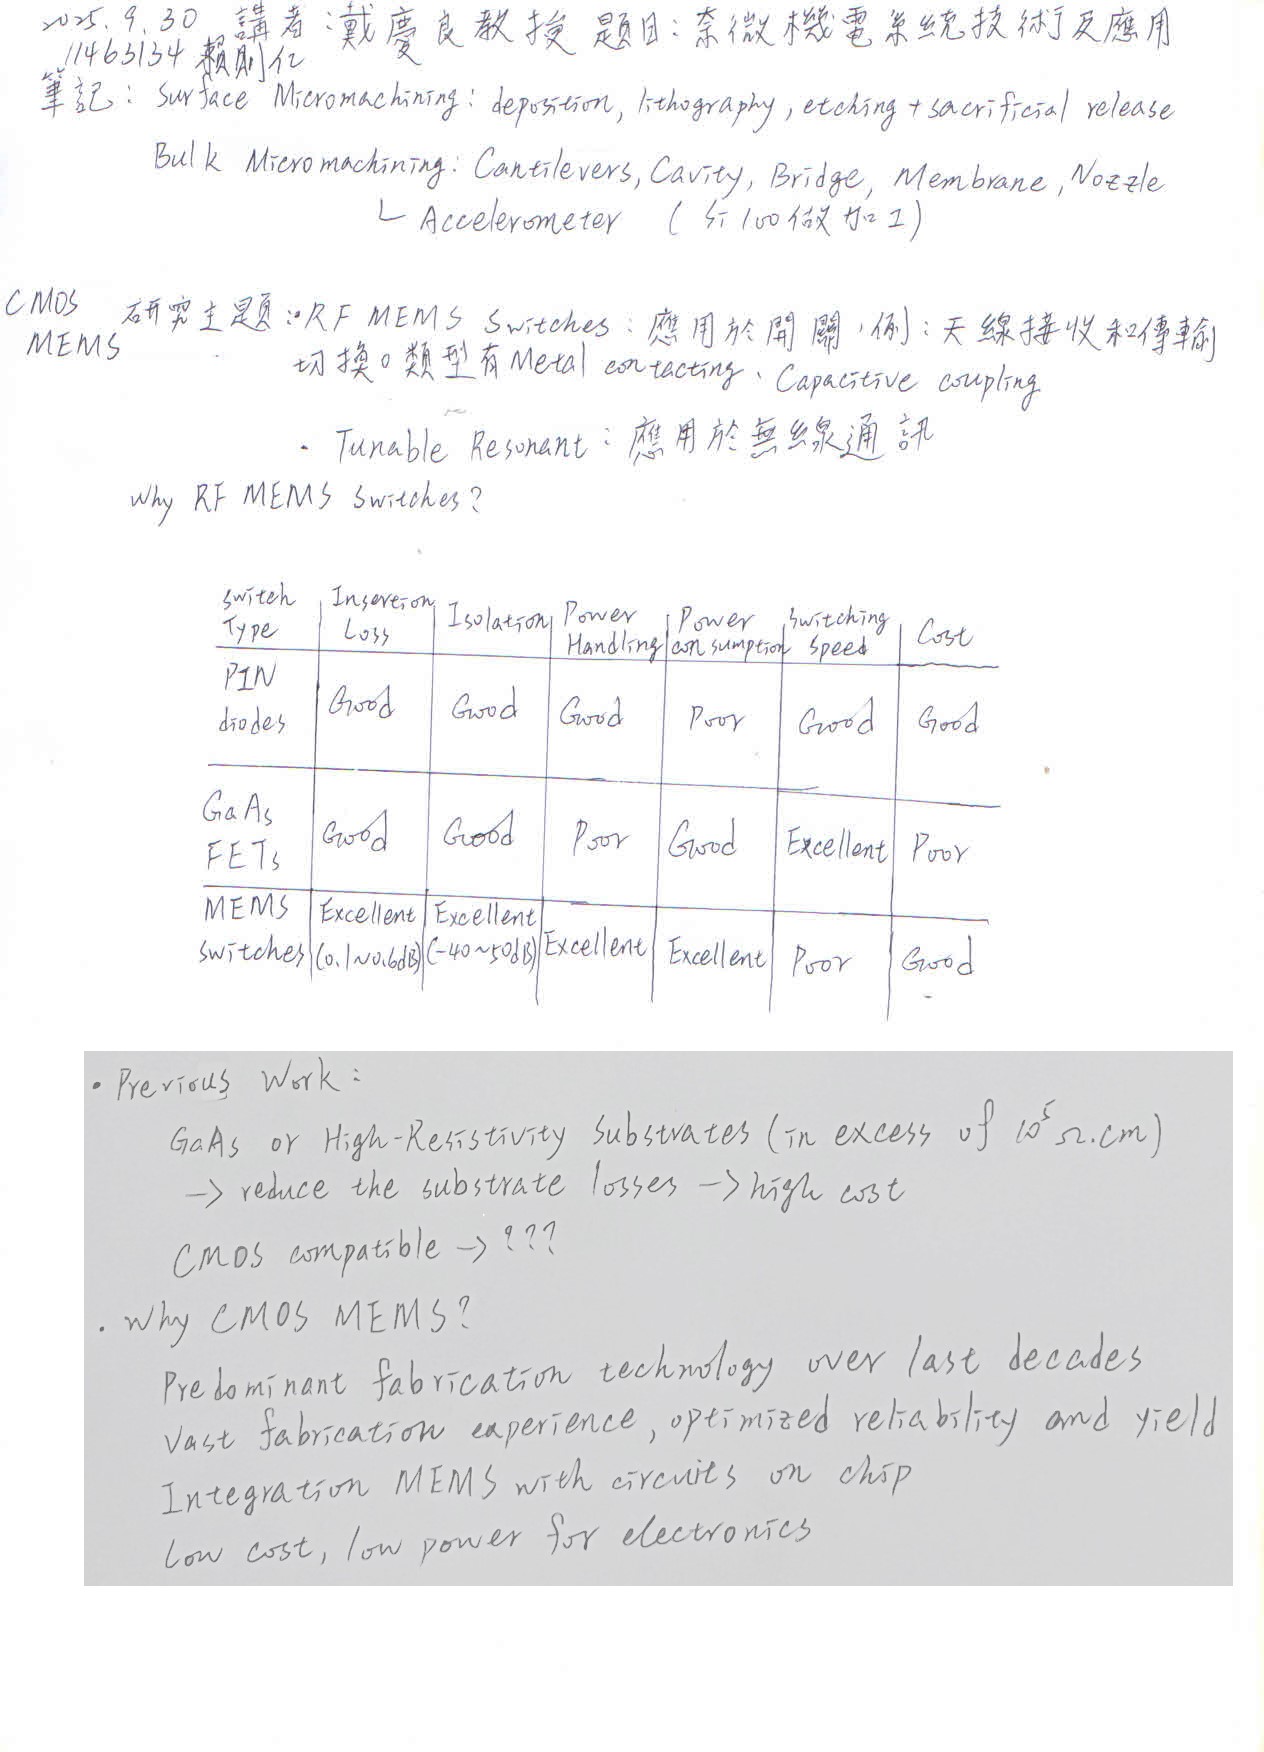 2025.9.30 講者:戴慶良教授 題目:奈微機電系統技術及應用
11463134 賴則仁
筆記: Surface Micromachining: deposition, lithography, etching + sacrificial release
Bulk Micromachining: Cantilevers, Cavity, Bridge, Membrane, Nozzle
└ Accelerometer (行100做加工)
CMOS MEMS 研究主題:•RF MEMS Switches: 應用於開關,例:天線接收和傳輸
切換。類型有Metal contacting、Capacitive coupling
• Tunable Resonant: 應用於無線通訊
Why RF MEMS Switches?
Switch Type | Insertion Loss | Isolation | Power Handling | Power consumption | Switching Speed | Cost
PIN diodes | Good | Good | Good | Poor | Good | Good
GaAs FETs | Good | Good | Poor | Good | Excellent | Poor
MEMS switches | Excellent (0.1~0.6dB) | Excellent (-40~50dB) | Excellent | Excellent | Poor | Good
• Previous Work:
GaAs or High-Resistivity Substrates (in excess of 10⁵ Ω.cm)
-> reduce the substrate losses -> high cost
CMOS compatible -> ???
• Why CMOS MEMS?
Predominant fabrication technology over last decades
Vast fabrication experience, optimized reliability and yield
Integration MEMS with circuits on chip
Low cost, low power for electronics